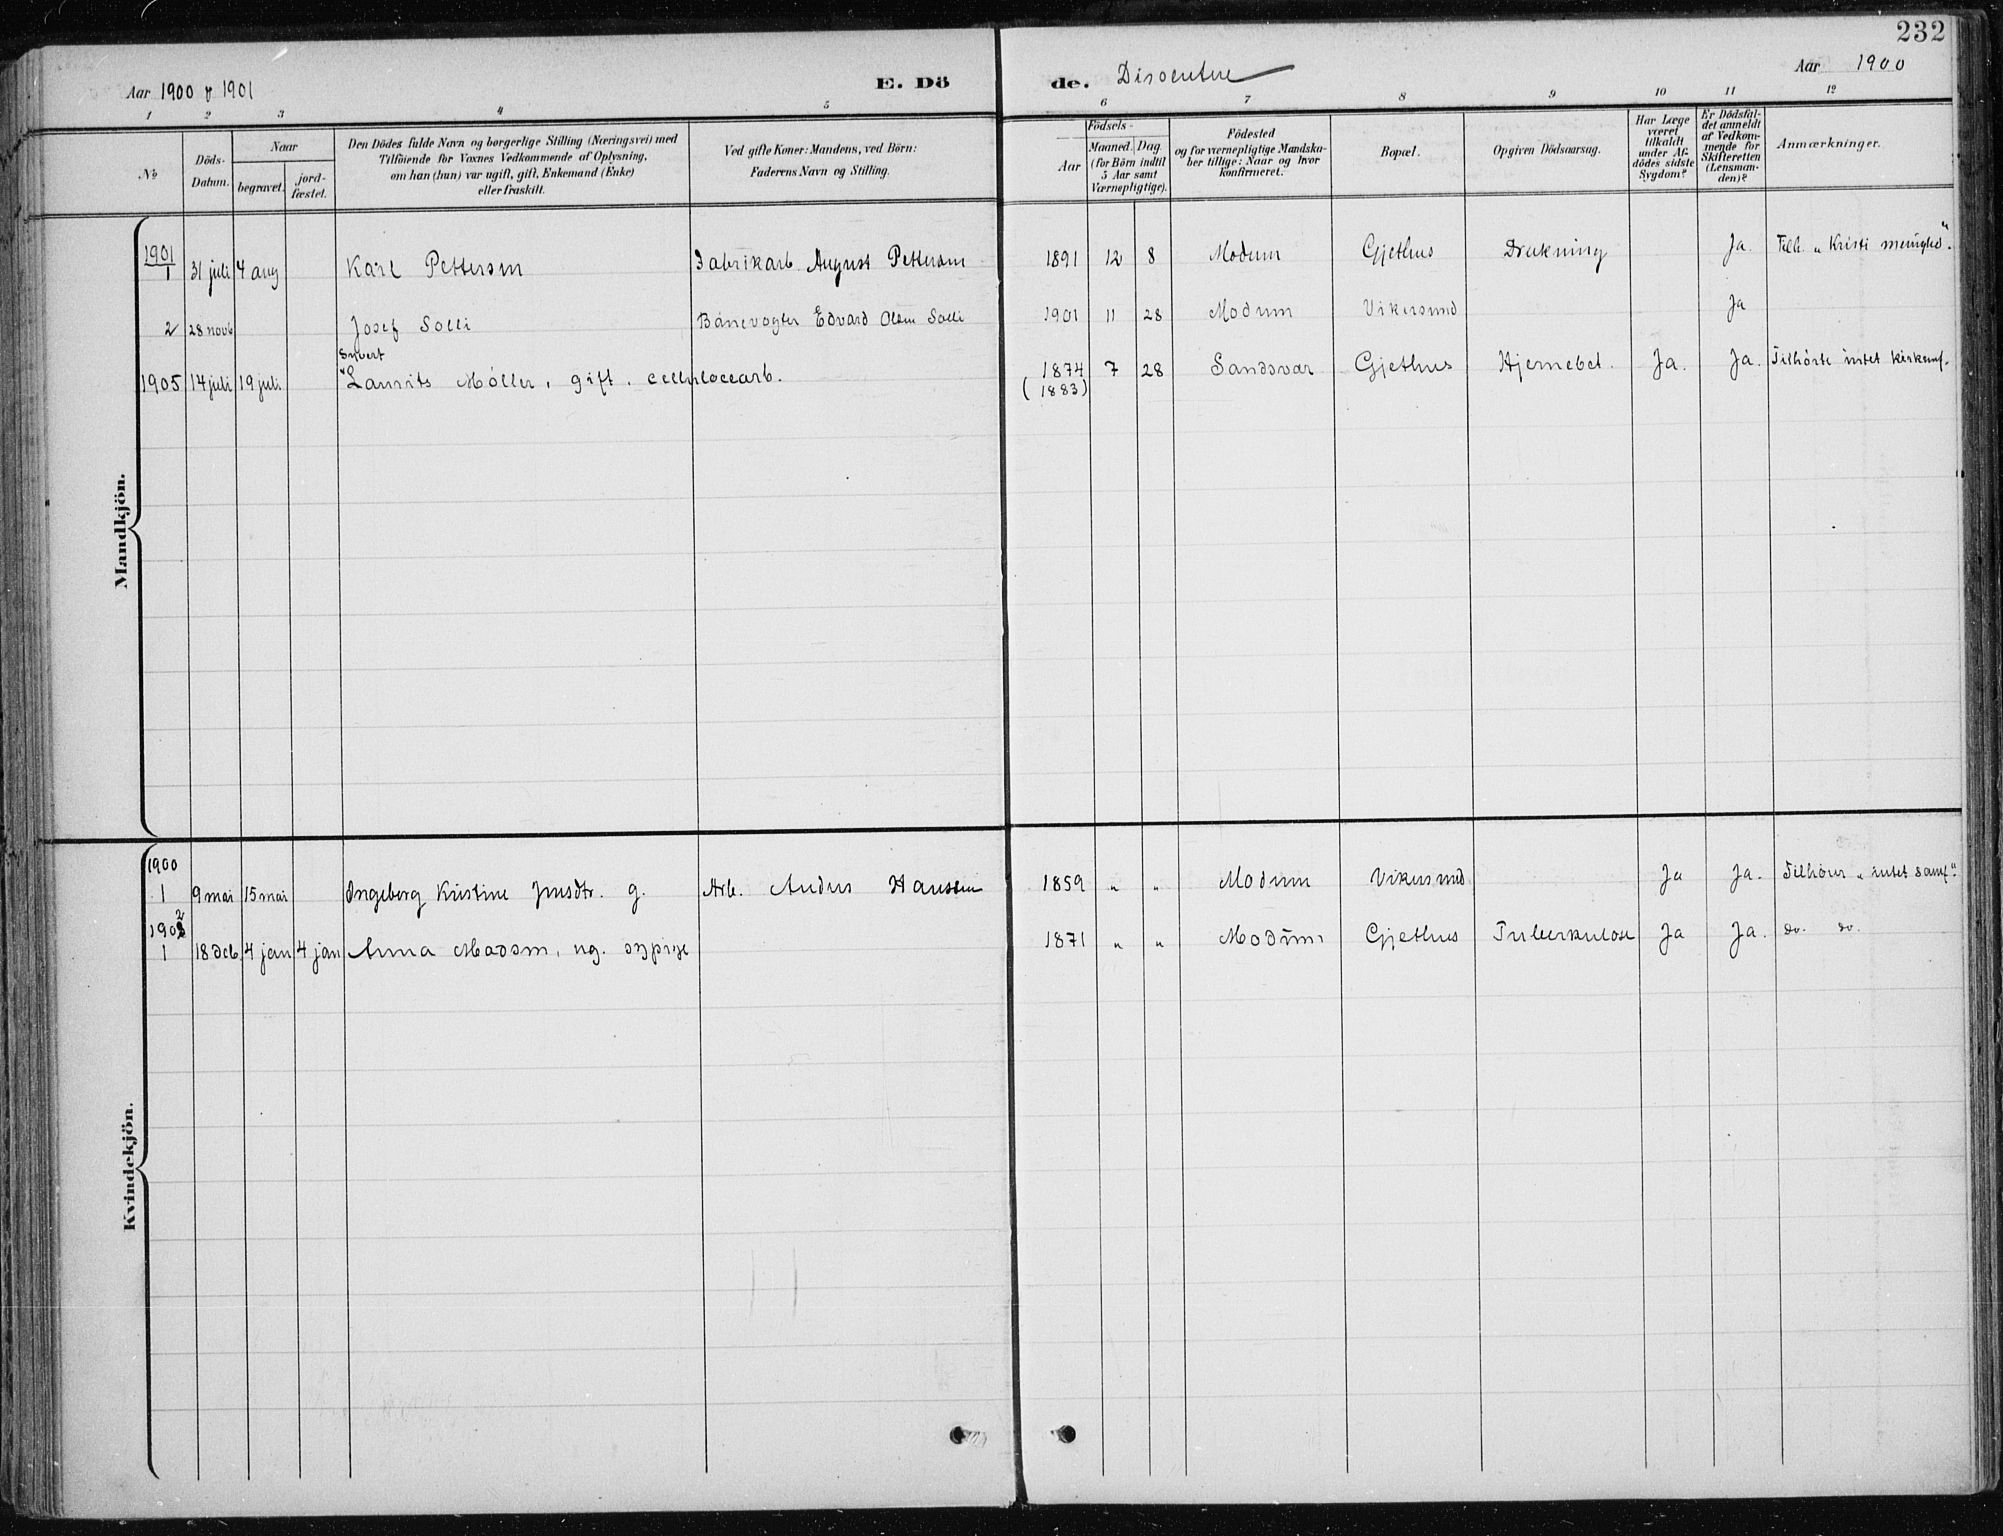 232
Aar 1900 & 1901
E. Dö de. Dissentere
Aar 1900
1 2 3 4 5 6 7 8 9 10 11 12
№
Döds-Datum.
Naar
begravet.
jord-fæstet.
Den Dödes fulde Navn og borgerlige Stilling (Næringsvei) med
Tilföiende for Voxnes Vedkommende af Oplysning,
om han (hun) var ugift, gift, Enkemand (Enke)
eller fraskilt.
Ved gifte Koner: Mandens, ved Börn:
Faderens Navn og Stilling.
Födsels-
Aar
Maaned. Dag
(for Börn indtil
5 Aar samt
Værnepligtige).
Födested
og for værnepligtige Mandska-
ber tillige: Naar og hvor
konfirmeret.
Bopæl.
Opgiven Dödsaarsag.
Har Læge
været
tilkaldt
under Af-
dödes sidste
Sygdom?
Er Dödsfal-
det anmeldt
af Vedkom-
mende for
Skifteretten
(Lensman-
den)?
Anmærkninger.
Mandkjön.
1901
1 31 juli 4 aug Karl Pettersen Fabrikarb August Pettersen 1891 12 8 Modum Gjethus Drukning Ja. Tilh. „Kristi menighed".
2 28 novb Josef Solli Banevogter Edvard Olsen Solli 1901 11 28 Modum Vikersund Ja
Sivert
1905 14 juli 19 juli. Laurits Möller, gift. cellulocearb. 1874 7 28 Sandsvær Gjethus Hjernebet. Ja. Ja. Tilhörte intet kirkesamf.
(1883)
Kvindekjön.
1900
1 9 mai 15 mai Ingeborg Kristine Jensdtr. g. Arb. Anders Hanssen 1859 „ „ Modum Vikersund Ja Ja. Tilhører „intet samf."
1902
1 18 dcb 4 jan 4 jan Anna Madsen, ug. sypige 1871 „ „ Modum. Gjethus Tuberkulose Ja Ja. do. do.